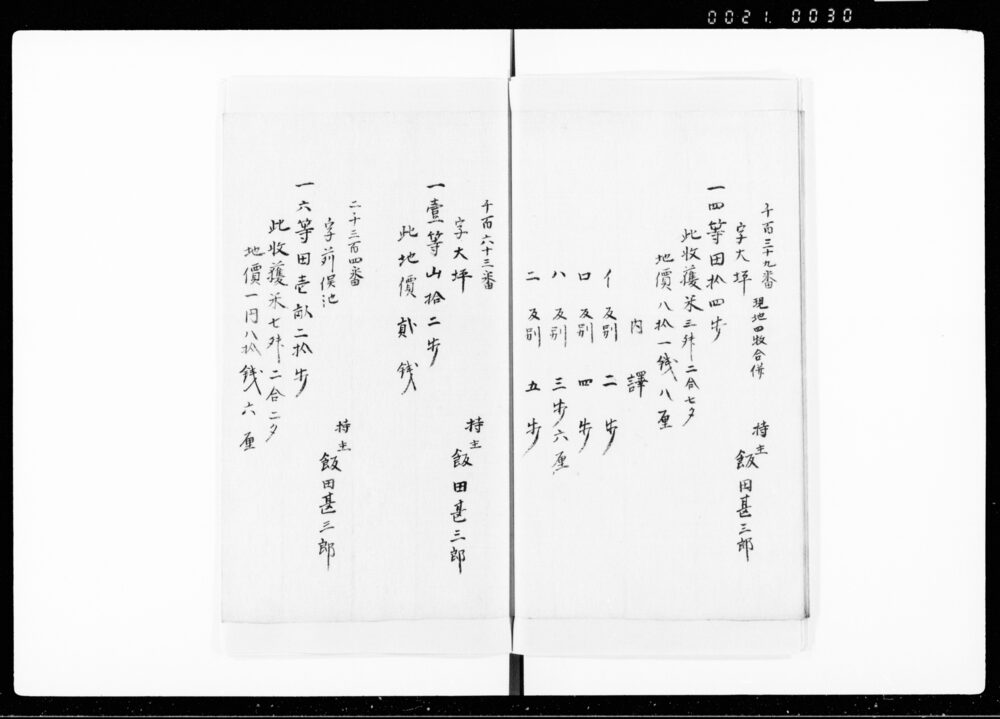 0021. 0030
千百三十九番 現地四牧合併
字大坪
一四等田拾四歩
持主 飯田甚三郎
此收獲米三舛二合七夕
地價八拾一銭八厘
内譯
イ 反別 二歩
ロ 反別 四歩
ハ 反別 三歩六厘
ニ 反別 五歩
千百六十三番
字大坪
一壹等山拾二歩
持主 飯田甚三郎
此地價貳銭
二千三百四番
字苅俣池
一六等田壱畝二拾歩
持主 飯田甚三郎
此收獲米七舛二合二夕
地價一円八拾銭六厘